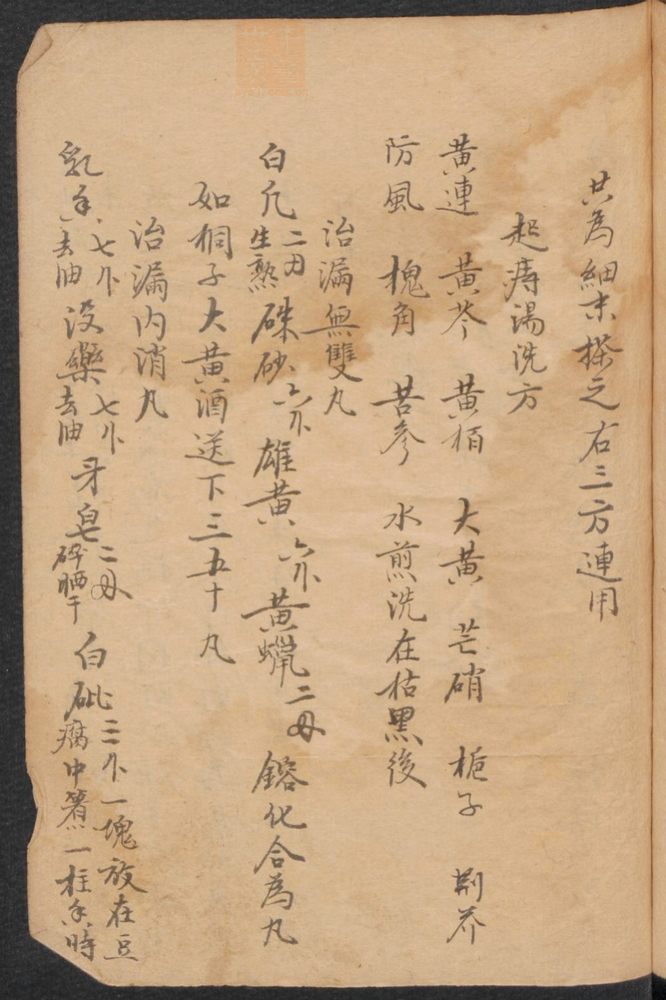 共為細末搽之右三方連用
起痔湯洗方
黃連 黃芩 黃栢 大黃 芒硝 梔子 荆芥
防風 槐角 苦參 水煎洗在枯黑後
治漏無雙丸
白凡二両生熟硃砂六分雄黃六分黃蠟二両鎔化合為丸
如桐子大黃酒送下三五十丸
治漏內消丸
乳香七个去油沒藥七个去油牙皂二両碎晒干白砒三个一塊放在豆腐中煮一柱香時